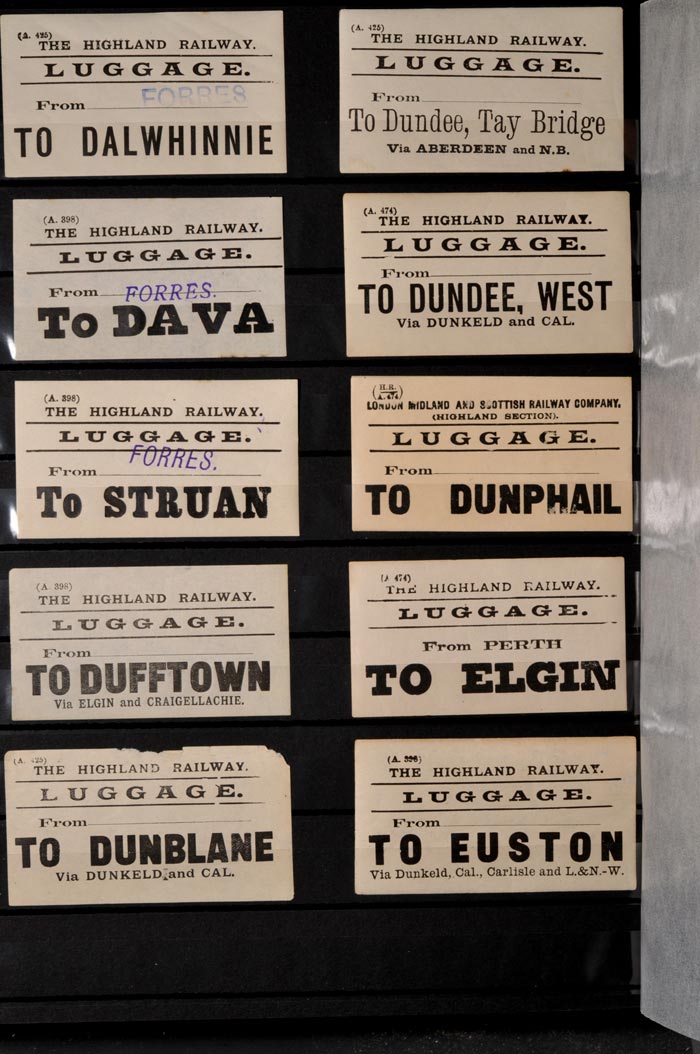 (A. 425)
THE HIGHLAND RAILWAY.
LUGGAGE.
From FORRES
TO DALWHINNIE
(A. 425)
THE HIGHLAND RAILWAY.
LUGGAGE.
From
To Dundee, Tay Bridge
Via ABERDEEN and N.B.
(A. 398)
THE HIGHLAND RAILWAY.
LUGGAGE.
From FORRES.
To DAVA
(A. 474)
THE HIGHLAND RAILWAY.
LUGGAGE.
From
TO DUNDEE, WEST
Via DUNKELD and CAL.
(A. 398)
THE HIGHLAND RAILWAY.
LUGGAGE.
From FORRES.
To STRUAN
(H.R.
A.474)
LONDON MIDLAND AND SCOTTISH RAILWAY COMPANY.
(HIGHLAND SECTION).
LUGGAGE.
From
TO DUNPHAIL
(A. 398)
THE HIGHLAND RAILWAY.
LUGGAGE.
From
TO DUFFTOWN
Via ELGIN and CRAIGELLACHIE.
(A 474)
THE HIGHLAND RAILWAY.
LUGGAGE.
From PERTH
TO ELGIN
(A. 425)
THE HIGHLAND RAILWAY.
LUGGAGE.
From
TO DUNBLANE
Via DUNKELD and CAL.
(A. 398)
THE HIGHLAND RAILWAY.
LUGGAGE.
From
TO EUSTON
Via Dunkeld, Cal., Carlisle and L.&N.-W.